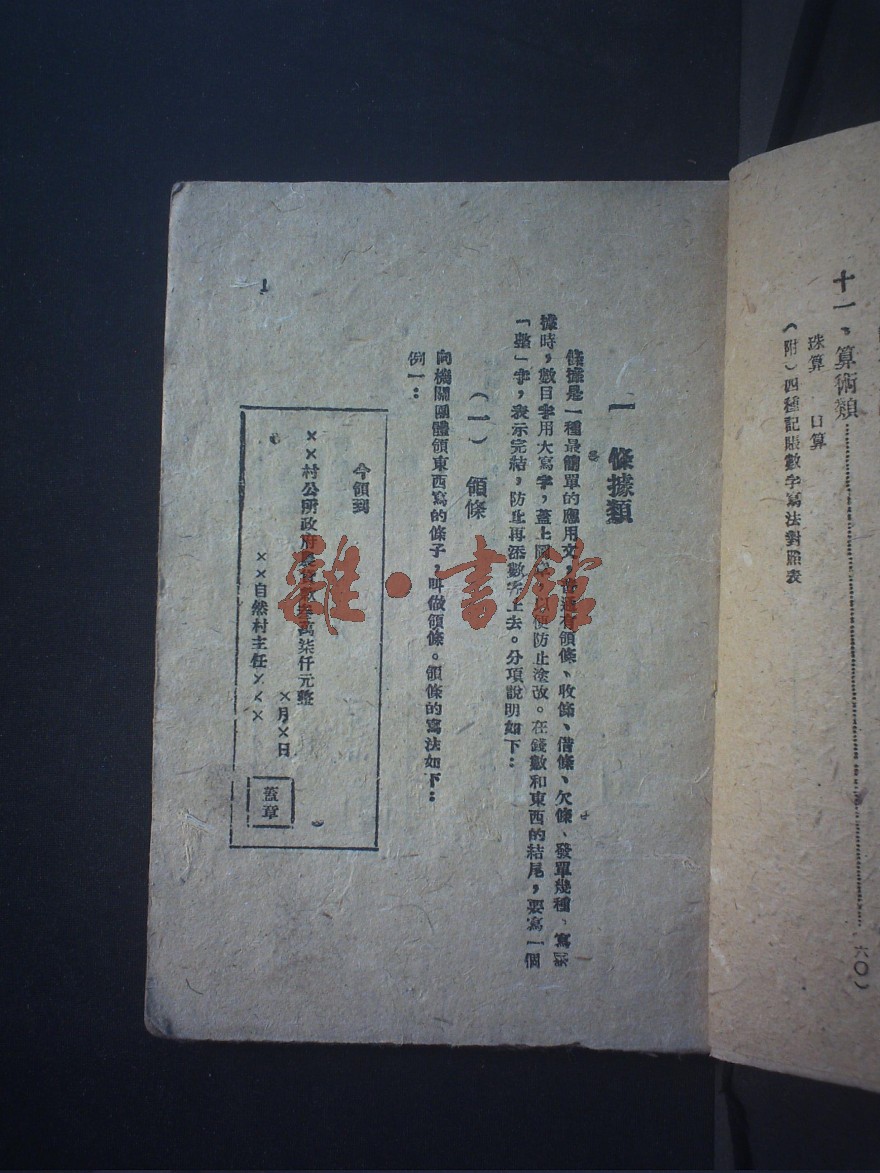 十一、算術類……六〇)
珠算 口算
(附)四種記賬數字寫法對照表
一 條據類
條據是一種最簡單的應用文,普通有領條、收條、借條、欠條、發單幾種、寫
據時,數目字用大寫字,蓋上圖章,以便防止塗改。在錢數和東西的結尾,要寫一個
「整」字,表示完結,防止再添數字上去。分項說明如下:
(一) 領條
向機關團體領東西寫的條子,叫做領條。領條的寫法如下:
例一:
今領到
××村公所政府農貸款叁萬柒仟元整
×月×日
××自然村主任×××
蓋章
1
雜·書館